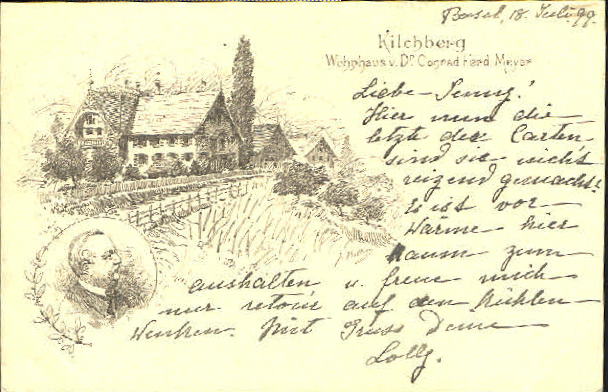 Basel, 18. Juli 99.
Kilchberg
Wohnhaus v. Dr Conrad Ferd. Meyer
Liebe Jenny!
Hier nun die
letzte der Carten,
sind sie nicht
reizend gemacht?
Es ist vor
Wärme hier
kaum zum
aushalten, u. freue mich
nur retour auf den kühlen
Mit Gruss Deine
Lolly.